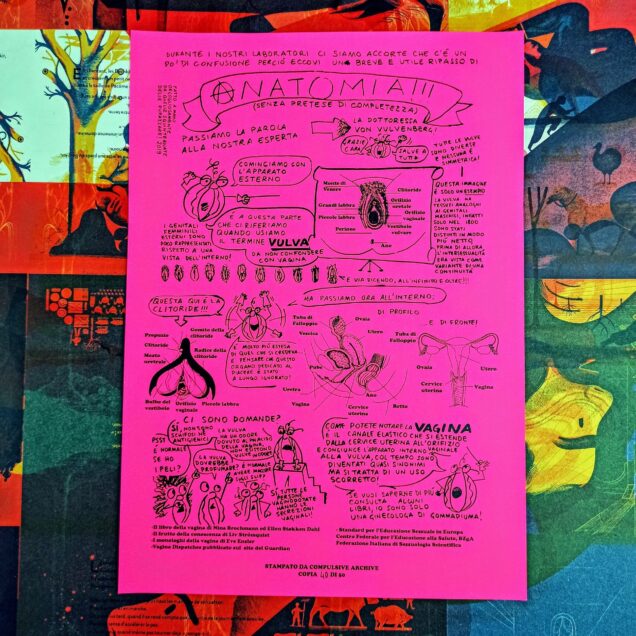 DURANTE I NOSTRI LABORATORI CI SIAMO ACCORTE CHE C'È UN
PO' DI CONFUSIONE PERCIÒ ECCOVI UN BREVE E UTILE RIPASSO DI
ANATOMIA!!!
(SENZA PRETESE DI COMPLETEZZA)
PASSIAMO LA PAROLA
ALLA NOSTRA ESPERTA
LA DOTTORESSA
VON VULVENBERG!
GRAZIE
CARA!
SALVE A
TUTT*
TUTTE LE VULVE
SONO DIVERSE
E NESSUNA È
SIMMETRICA!
COMINCIAMO CON
L'APPARATO
ESTERNO
I GENITALI
FEMMINILI
ESTERNI SONO
POCO RAPPRESENTATI
RISPETTO A UNA
VISTA DELL'INTERNO!
È A QUESTA PARTE
CHE CI RIFERIAMO
QUANDO USIAMO
IL TERMINE VULVA
DA NON CONFONDERE
CON VAGINA
Monte di
Venere
Grandi labbra
Piccole labbra
Perineo
Clitoride
Orifizio
uretrale
Orifizio
vaginale
Vestibolo
vulvare
Ano
QUESTA IMMAGINE
È SOLO UN ESEMPIO
LA VULVA HA
TESSUTI ANALOGHI
AI GENITALI
MASCHILI, INFATTI
SOLO NEL 1800
SONO STATI
DISTINTI IN MODO
PIÙ NETTO
PRIMA DI ALLORA
L'INTERSESSUALITÀ
ERA VISTA COME
VARIANTE DI UNA
CONTINUITÀ
E VIA DICENDO, ALL'INFINITO E OLTRE!!!
QUESTA QUI È LA
CLITORIDE!!!
È MOLTO PIÙ ESTESA
DI QUEL CHE SI CREDEVA
E PENSARE CHE QUESTO
ORGANO DEDICATO AL
PIACERE È STATO
A LUNGO IGNORATO!
Prepuzio
Clitoride
Meato
uretrale
Gomito della
clitoride
Radice della
clitoride
Bulbo del
vestibolo
Orifizio
vaginale
Piccole labbra
MA PASSIAMO ORA ALL'INTERNO:
DI PROFILO
...E DI FRONTE!
Tuba di
Falloppio
Vescica
Pube
Uretra
Vagina
Ovaia
Utero
Ano
Cervice
uterina
Retto
Tuba di
Falloppio
Ovaia
Cervice
uterina
Utero
Vagina
CI SONO DOMANDE?
PSST
È NORMALE
SE HO
I PELI?
SÌ, NON SONO
SCHIFOSI NÉ
ANTIGIENICI
LA VULVA
DOVREBBE
PROFUMARE?
LA VULVA
HA UN ODORE
DOVUTO AL
DELLA VAGINA,
NON ESISTONO
È NORMALE
AVERE MACCHIE
SUGLI SLIP?
SÌ, TUTTE LE
PERSONE
VAGINODOTATE
HANNO LE
SECREZIONI
VAGINALI!
COME POTETE NOTARE LA VAGINA
È IL CANALE ELASTICO CHE SI ESTENDE
DALLA CERVICE UTERINA ALL'ORIFIZIO
VAGINALE
E CONGIUNGE L'APPARATO INTERNO
ALLA VULVA, COL TEMPO SONO
DIVENTATI QUASI SINONIMI
MA SI TRATTA DI UN USO
SCORRETTO!
SE VUOI SAPERNE DI PIÙ
CONSULTA ALCUNI
LIBRI, IO SONO SOLO
UNA GINECOLOGA DI GOMMAPIUMA!
-Il libro della vagina di Nina Brochmann ed Ellen Støkken Dahl
-Il frutto della conoscenza di Liv Strömquist
-I monologhi della vagina di Eve Ensler
-Vagina Dispatches pubblicato sul sito del Guardian
- Standard per l'Educazione Sessuale in Europa
Centro Federale per l'Educazione alla Salute, BZgA
Federazione Italiana di Sessuologia Scientifica
STAMPATO DA COMPULSIVE ARCHIVE
COPIA 40 DI 50